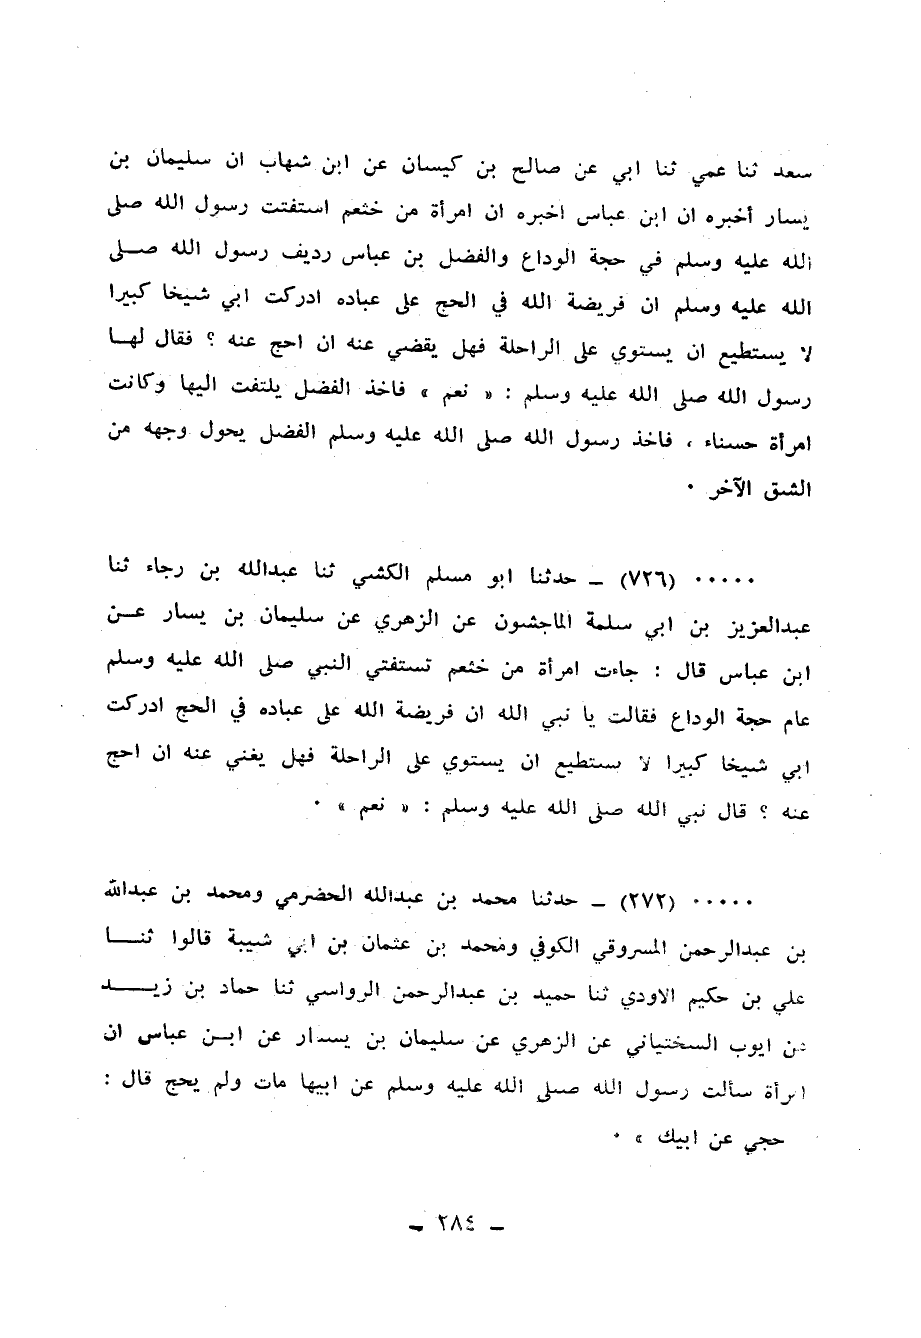 سعد ثنا عمي ثنا ابي عن صالح بن كيسان عن ابن شهاب ان سليمان بن
يسار أخبره ان ابن عباس اخبره ان امرأة من خثعم استفتت رسول الله صلى
الله عليه وسلم في حجة الوداع والفضل بن عباس رديف رسول الله صلى
الله عليه وسلم ان فريضة الله في الحج على عباده ادركت ابي شيخا كبيرا
لا يستطيع ان يستوي على الراحلة فهل يقضي عنه ان احج عنه ؟ فقال لها
رسول الله صلى الله عليه وسلم : « نعم » فاخذ الفضل يلتفت اليها وكانت
امرأة حسناء ، فاخذ رسول الله صلى الله عليه وسلم الفضل يحول وجهه من
الشق الآخر ٠
٠٠٠٠٠ (٧٢٦) ــ حدثنا ابو مسلم الكشي ثنا عبدالله بن رجاء ثنا
عبدالعزيز بن ابي سلمة الماجشون عن الزهري عن سليمان بن يسار عن
ابن عباس قال : جاءت امرأة من خثعم تستفتي النبي صلى الله عليه وسلم
عام حجة الوداع فقالت يا نبي الله ان فريضة الله على عباده في الحج ادركت
ابي شيخا كبيرا لا يستطيع ان يستوي على الراحلة فهل يغني عنه ان احج
عنه ؟ قال نبي الله صلى الله عليه وسلم : « نعم » ٠
٠٠٠٠٠ (٢٧٢) ــ حدثنا محمد بن عبدالله الحضرمي ومحمد بن عبدالله
بن عبدالرحمن المسروقي الكوفي ومحمد بن عثمان بن ابي شيبة قالوا ثنا
علي بن حكيم الاودي ثنا حميد بن عبدالرحمن الرواسي ثنا حماد بن زيد
عن ايوب السختياني عن الزهري عن سليمان بن يسار عن ابن عباس ان
امرأة سألت رسول الله صلى الله عليه وسلم عن ابيها مات ولم يحج قال :
حجي عن ابيك » ٠
ــ ٢٨٤ ــ